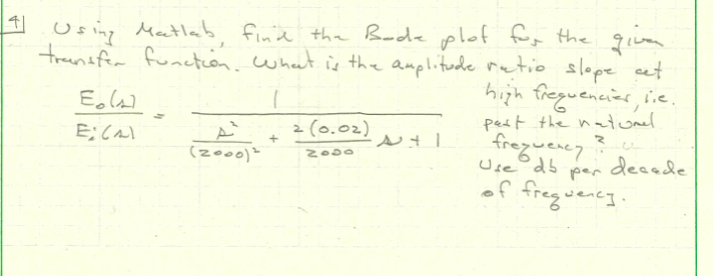 4] Using Matlab, find the Bode plot for the given
transfer function. What is the amplitude ratio slope at
high frequencies, i.e.
past the natural
frequency?
Use db per decade
of frequency.
E₀(s) / Eᵢ(s) = 1 / ( s² / (2000)² + 2(0.02) / 2000 s + 1 )